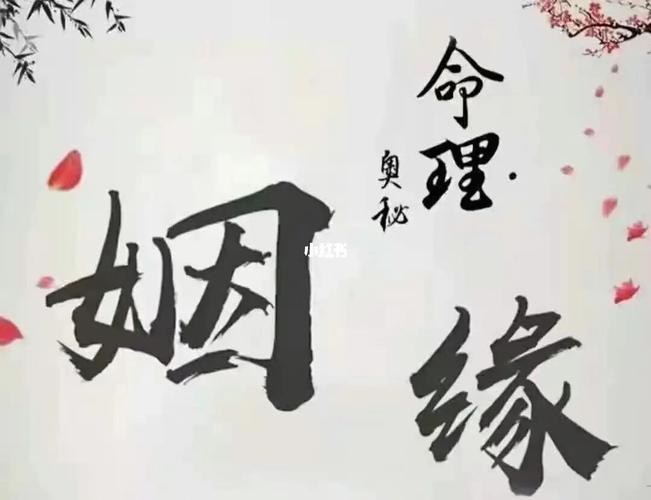 命理
奥秘
姻缘
小红书